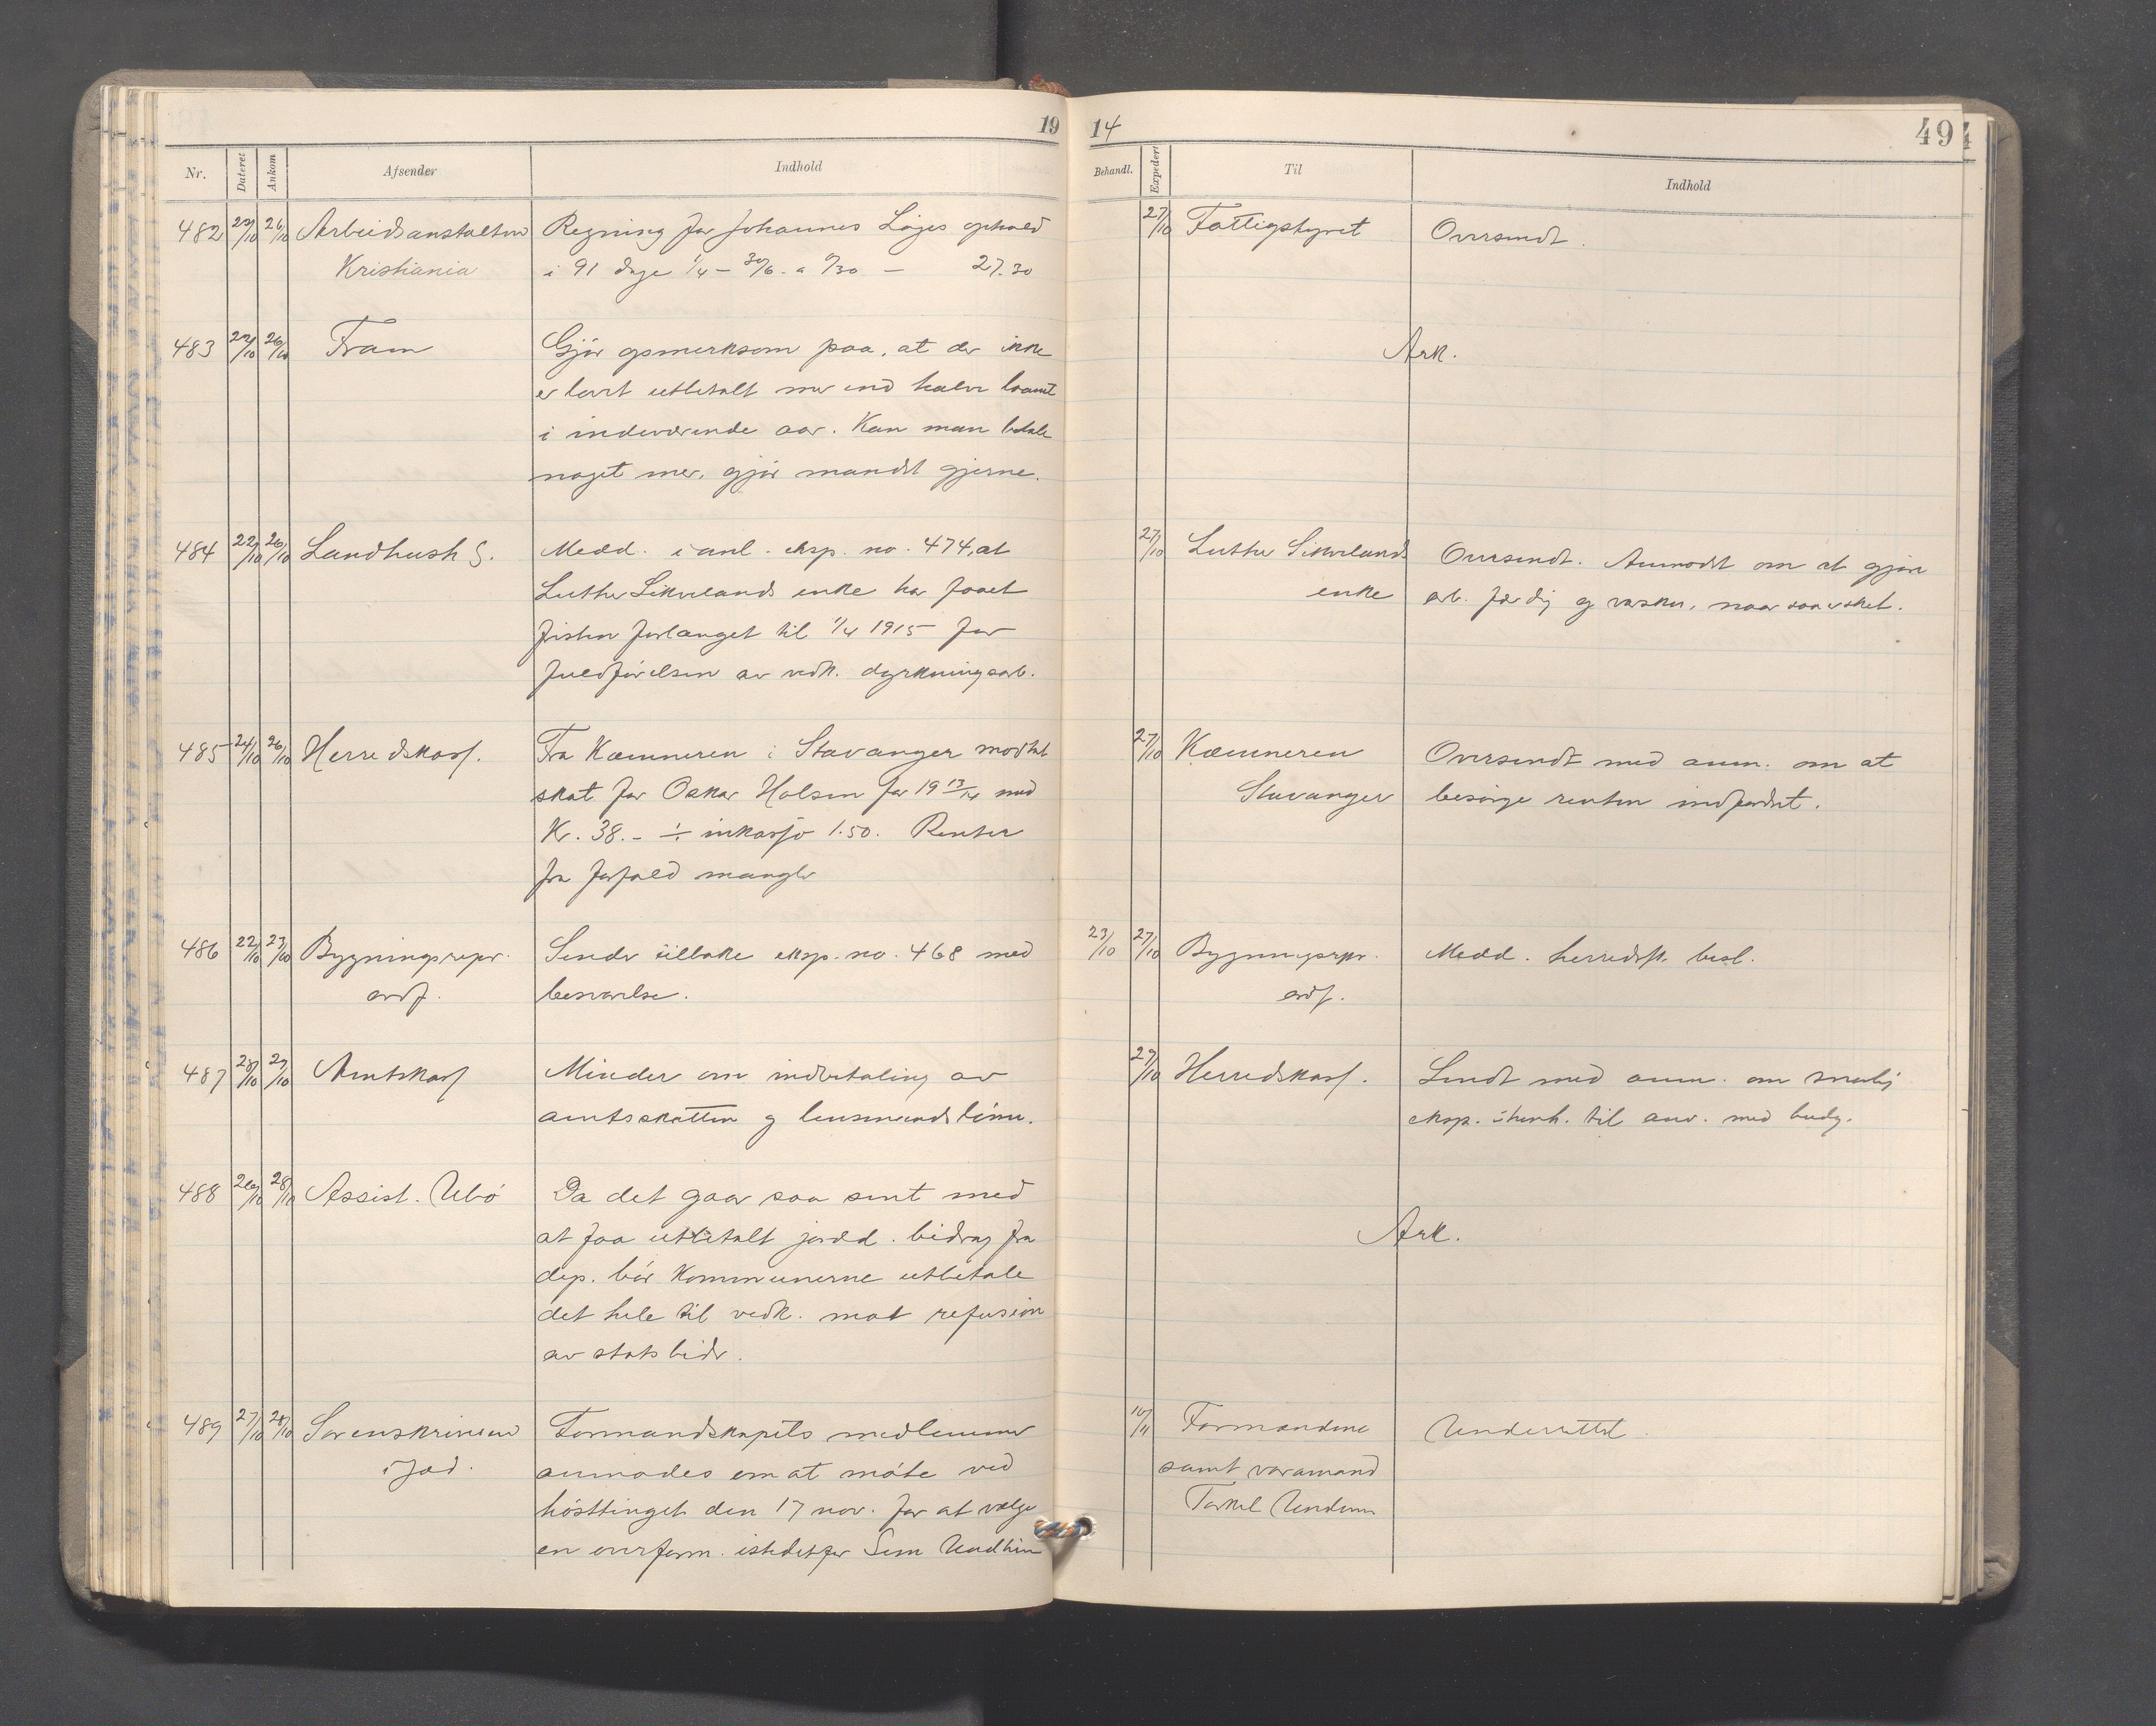 19 14
49
Nr. Dateret Ankom Afsender Indhold
Behandl. Expedert Til Indhold
482 22/10 26/10 Arbeidsanstalten Regning for Johannes Løges ophold
Kristiania i 91 dage 1/4 - 30/6 a 0/30 - 27.30
27/10 Fattigstyret Oversendt.
483 22/10 26/10 Fram Gjør opmerksom paa, at der ikke
er blevt utbetalt mer end halv
i indeværende aar. Kan man betale
noget mer, gjør mandst gjerne.
Ark.
484 22/10 26/10 Landhush S. Medd. i anl. eksp. no. 474, at
Luther Sikvelands enke har faaet
fristen forlænget til 1/4 1915 for
fuldførelsen av vedk. dyrkningsarb.
27/10 Luther Sikvelands Oversendt. Anmodet om at gjøre
enke arb. færdig og varsku, naar saa er sket.
485 24/10 26/10 Herredskass. Fra Kæmneren i Stavanger modtat
skat for Oskar Holsen for 19 13/14 med
Kr. 38.- ÷ inkasso 1.50. Renter
fra forfald mangler
27/10 Kæmneren Oversendt med anm. om at
Stavanger besørge renten indfordret.
486 22/10 23/10 Bygningsrepr. Sender tilbake eksp. no. 468 med
ordf. besvarelse.
23/10 27/10 Bygningsrepr. Medd. herredsst. besl.
ordf.
487 28/10 27/10 Amtskass Minder om indbetaling av
amtsskatten og lensmandslønn.
27/10 Herredskass. Sendt med anm. om snarlig
eksp. i henh. til anv. med budg.
488 26/10 28/10 Assist. Ubø Da det gaar saa sent med
at faa utbetalt jordd. bidrag fra
dep. bør Kommunerne utbetale
det hele til vedk. mot refusion
av statsbidr.
Ark.
489 27/10 28/10 Sorenskriveren Formandskapets medlemmer
i Jæd. anmodes om at møte ved
høsttinget den 17 nov. for at vælge
en overform. istedetfor Sem Undhim
10/11 Formændene Underrettet.
samt varamand
Torkel Undem